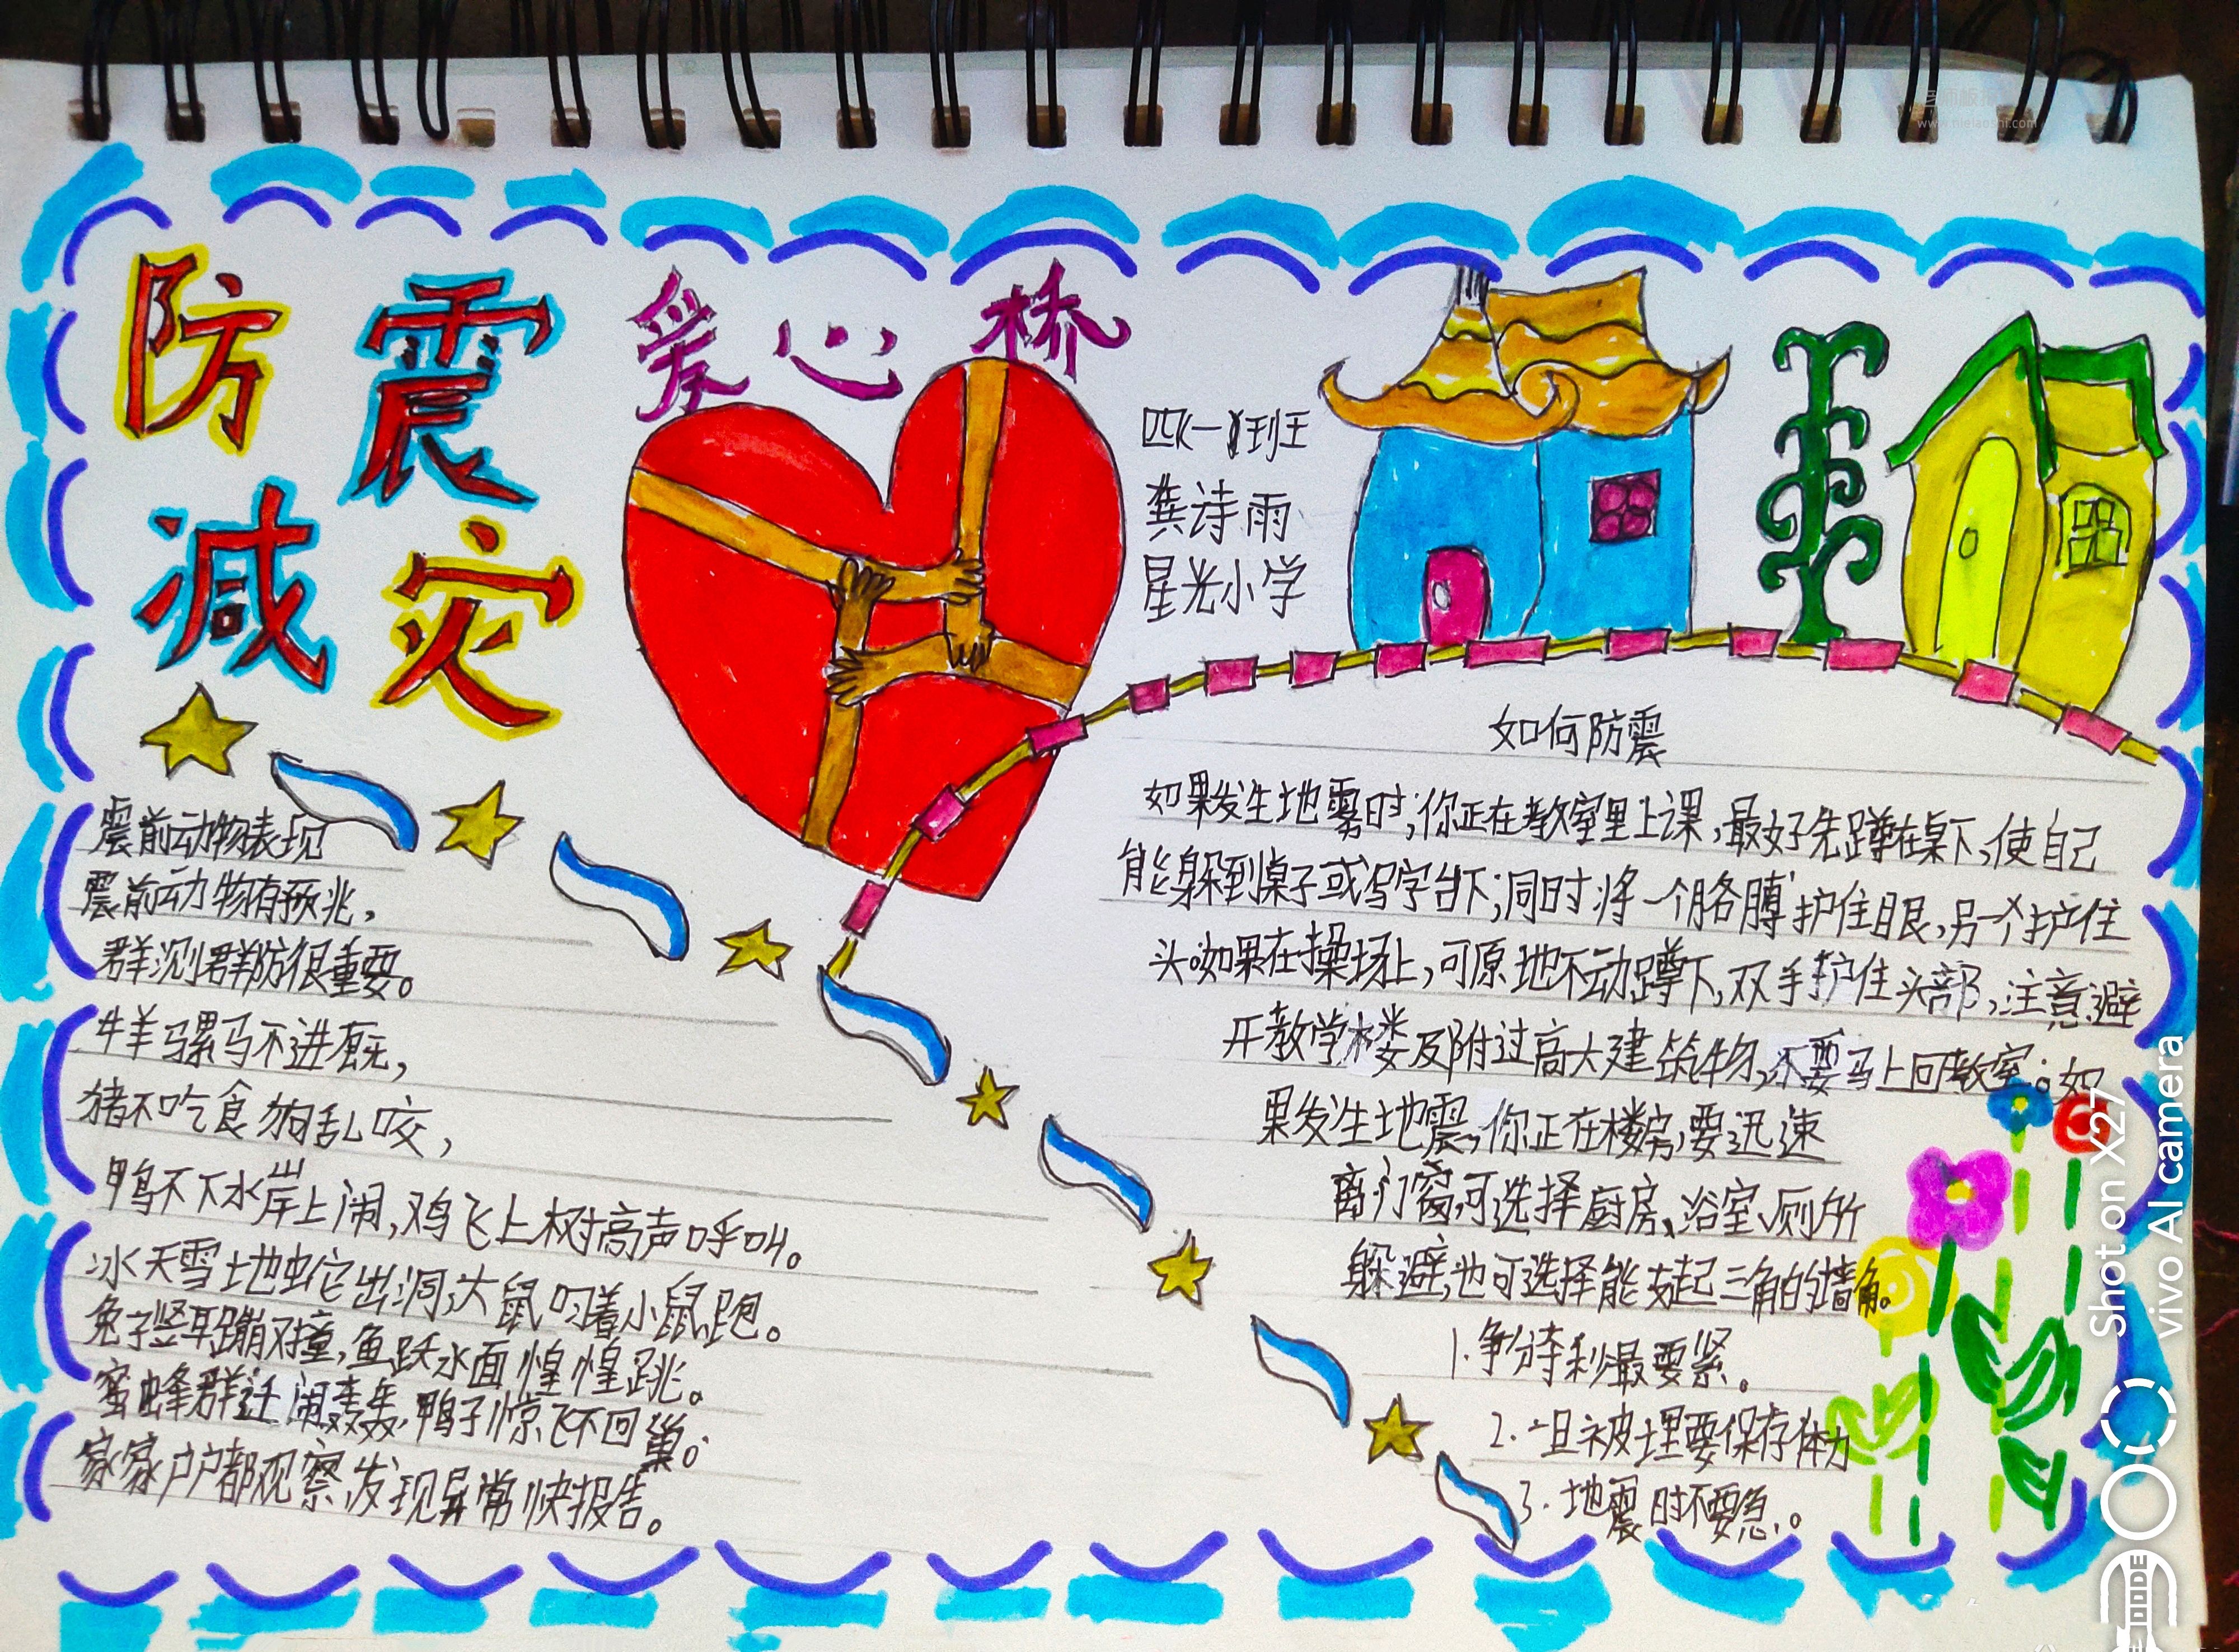 防震
减灾
爱心桥
龚诗雨
星光小学
震前动物表现
震前动物有预兆,
群测群防很重要。
牛羊骡马不进厩,
猪不吃食狗乱咬,
鸭不下水岸上闹,鸡飞上树高声呼叫。
冰天雪地蛇出洞,大鼠叼着小鼠跑。
兔子竖耳蹦又撞,鱼跃水面惶惶跳。
蜜蜂群迁闹轰轰,鸭子惊飞不回巢。
家家户户都观察,发现异常快报告。
如何防震
如果发生地震时;你正在教室里上课,最好先蹲在桌下,使自己
能躲到桌子或写字台下;同时将一个胳膊护住眼,另一个护住
头。如果在操场上,可原地不动蹲下,双手护住头部,注意避
开教学楼及附过高大建筑物,不要马上回教室。如
果发生地震,你正在楼房,要迅速
离门窗,可选择厨房、浴室、厕所
躲避,也可选择能支起三角的墙角。
1.争分夺秒最要紧。
2.一旦被埋要保存体力
3.地震时不要急。
Shot on X27
vivo AI camera